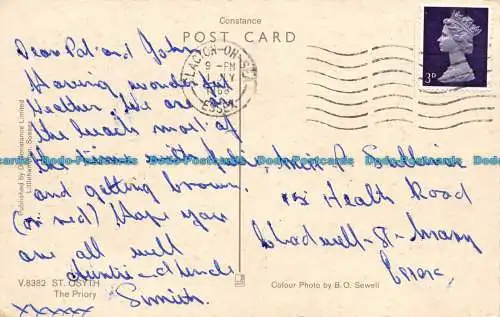 Constance
POST CARD
CLACTON-ON-SEA
9 - PM
ESSEX
3D
Dear Pat and John
Having wonderful
Weather. We are on
the beach most of
the time with
and getting brown.
(or red) Hope you
are all well
Auntie & Uncle
Smith.
xxxxx
15 Heath Road
Chadwell-St-Mary
Essex
Published by Constance Limited
Littlehampton, Sussex
V.8382 ST. OSYTH
The Priory
Colour Photo by B. O. Sewell
Dodo-Postcards Dodo-Postcards Dodo-Postcards Dodo-Postcards Dodo-Postcards